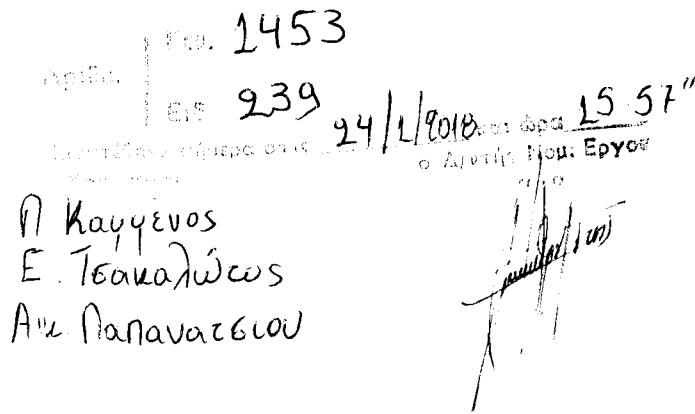 Αριθ. Γεν. 1453
Ειδ 239
σήμερα στις 24/1/2018 και ώρα 15 57"
ο Δ/ντής Νομ. Έργου
Π Καμμένος
Ε. Τσακαλώτος
Αικ Παπανατσιου